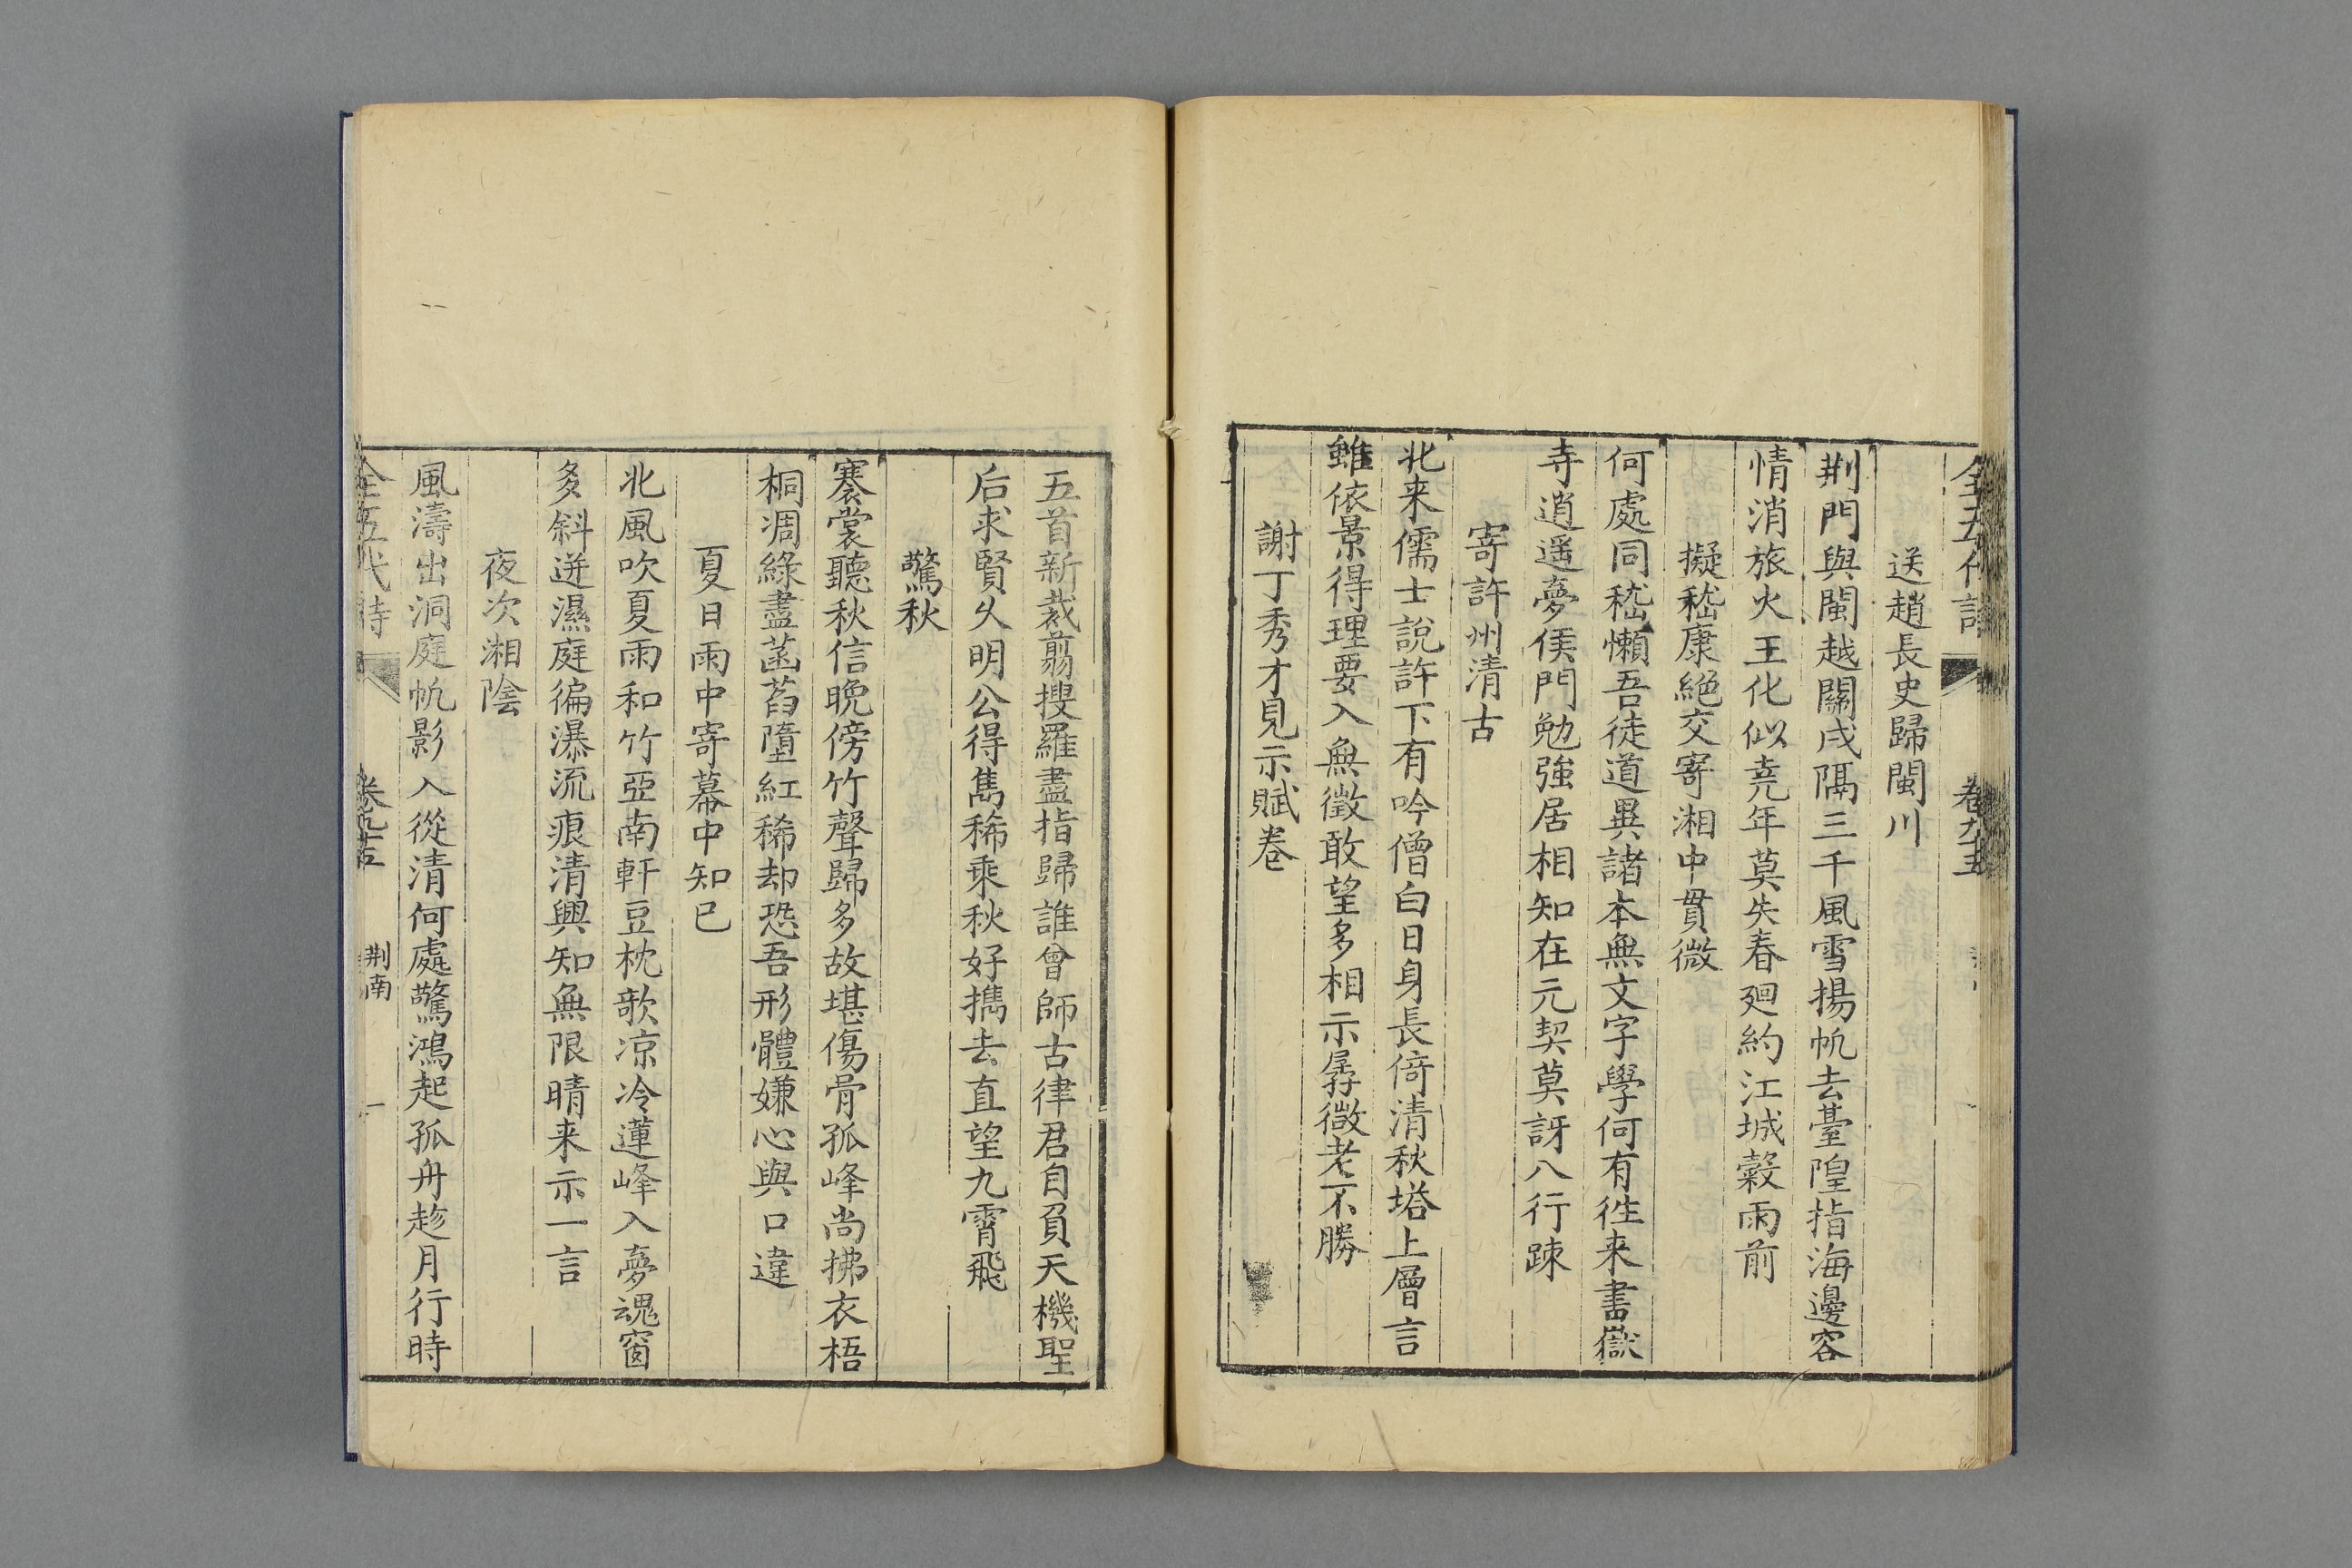 全五代詩 卷九十五
送趙長史歸閩川
荆門與閩越關戍隔三千風雪揚帆去臺隍指海邊容
情消旅火王化似堯年莫失春廻約江城穀雨前
擬嵇康絕交寄湘中貫微
何處同嵇懶吾徒道異諸本無文字學何有徃来書嶽
寺逍遥夢侯門勉強居相知在元契莫訝八行踈
寄許州清古
北来儒士說許下有吟僧白日身長倚清秋塔上層言
雖依景得理要入無徵敢望多相示孱微老不勝
謝丁秀才見示賦卷
五首新裁翦搜羅盡指歸誰曾師古律君自負天機聖
后求賢乆明公得雋稀乘秋好擕去直望九霄飛
驚秋
褰裳聽秋信晩傍竹聲歸多故堪傷骨孤峰尚拂衣梧
桐凋綠盡菡萏墮紅稀却恐吾形體嫌心與口違
夏日雨中寄幕中知已
北風吹夏雨和竹亞南軒豆枕欹凉冷蓮峰入夢魂窗
多斜迸濕庭徧瀑流痕清興知無限晴来示一言
夜次湘陰
風濤出洞庭帆影入從清何處驚鴻起孤舟趂月行時
全五代詩 卷九十五 荆南 一